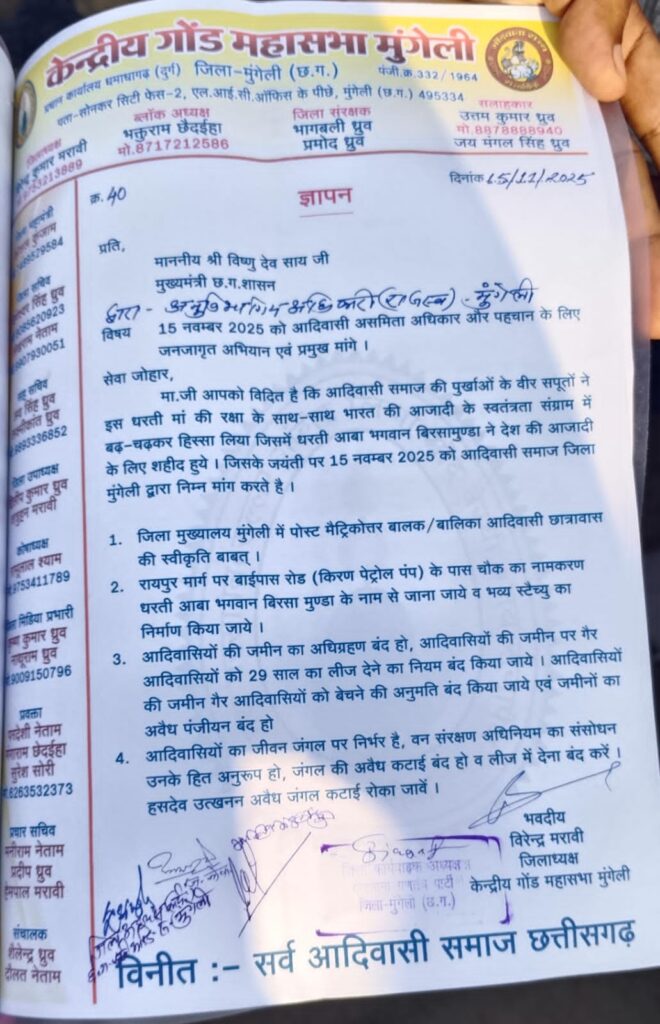 केन्द्रीय गोंड महासभा मुंगेली
प्रधान कार्यालय धमाधागढ़ (दुर्ग) जिला-मुंगेली (छ.ग.) पंजी.क्र.332/1964
पता-सोनकर सिटी फेस-2, एल.आई.सी.ऑफिस के पीछे, मुंगेली (छ.ग.) 495334
ब्लॉक अध्यक्ष
भक्तुराम छैदईहा
मो.8717212586
जिला संरक्षक
भागबली ध्रुव
प्रमोद ध्रुव
सलाहकार
उत्तम कुमार ध्रुव
मो.8878888940
जय मंगल सिंह ध्रुव
कुमार मरावी
क्र. 40
दिनांक 15/11/2025
ज्ञापन
प्रति,
माननीय श्री विष्णु देव साय जी
मुख्यमंत्री छ.ग.शासन
द्वारा - अनुविभागीय अधिकारी (राजस्व) - मुंगेली
विषय 15 नवम्बर 2025 को आदिवासी असमिता अधिकार और पहचान के लिए
जनजागृत अभियान एवं प्रमुख मांगे ।
सेवा जोहार,
मा.जी आपको विदित है कि आदिवासी समाज की पुर्खाओं के वीर सपूतों ने
इस धरती मां की रक्षा के साथ-साथ भारत की आजादी के स्वतंत्रता संग्राम में
बढ़-चढ़कर हिस्सा लिया जिसमें धरती आबा भगवान बिरसामुण्डा ने देश की आजादी
के लिए शहीद हुये । जिसके जयंती पर 15 नवम्बर 2025 को आदिवासी समाज जिला
मुंगेली द्वारा निम्न मांग करते है ।
1. जिला मुख्यालय मुंगेली में पोस्ट मैट्रिकोत्तर बालक/बालिका आदिवासी छात्रावास
की स्वीकृति बाबत् ।
2. रायपुर मार्ग पर बाईपास रोड (किरण पेट्रोल पंप) के पास चौक का नामकरण
धरती आबा भगवान बिरसा मुण्डा के नाम से जाना जाये व भव्य स्टैच्यु का
निर्माण किया जाये ।
3. आदिवासियों की जमीन का अधिग्रहण बंद हो, आदिवासियों की जमीन पर गैर
आदिवासियों को 29 साल का लीज देने का नियम बंद किया जाये । आदिवासियों
की जमीन गैर आदिवासियों को बेचने की अनुमति बंद किया जाये एवं जमीनों का
अवैध पंजीयन बंद हो
4. आदिवासियों का जीवन जंगल पर निर्भर है, वन संरक्षण अधिनियम का संसोधन
उनके हित अनुरूप हो, जंगल की अवैध कटाई बंद हो व लीज में देना बंद करें ।
हसदेव उत्खनन अवैध जंगल कटाई रोका जावें ।
भवदीय
विरेन्द्र मरावी
जिलाध्यक्ष
केन्द्रीय गोंड महासभा मुंगेली
जिला-मुंगेली (छ.ग.)
विनीत :- सर्व आदिवासी समाज छत्तीसगढ़
सिंह ध्रुव
नेताम
9893336852
उपाध्यक्ष
कुमार ध्रुव
मरावी
कोषाध्यक्ष
श्याम
9753411789
मिडिया प्रभारी
कुमार ध्रुव
ध्रुव
9009150796
प्रवक्ता
नेताम
छेदईहा
सुरेश सोरी
6263532373
प्रचार सचिव
मनीराम नेताम
प्रदीप ध्रुव
मरावी
संचालक
शैलेन्द्र ध्रुव
दौलत नेताम